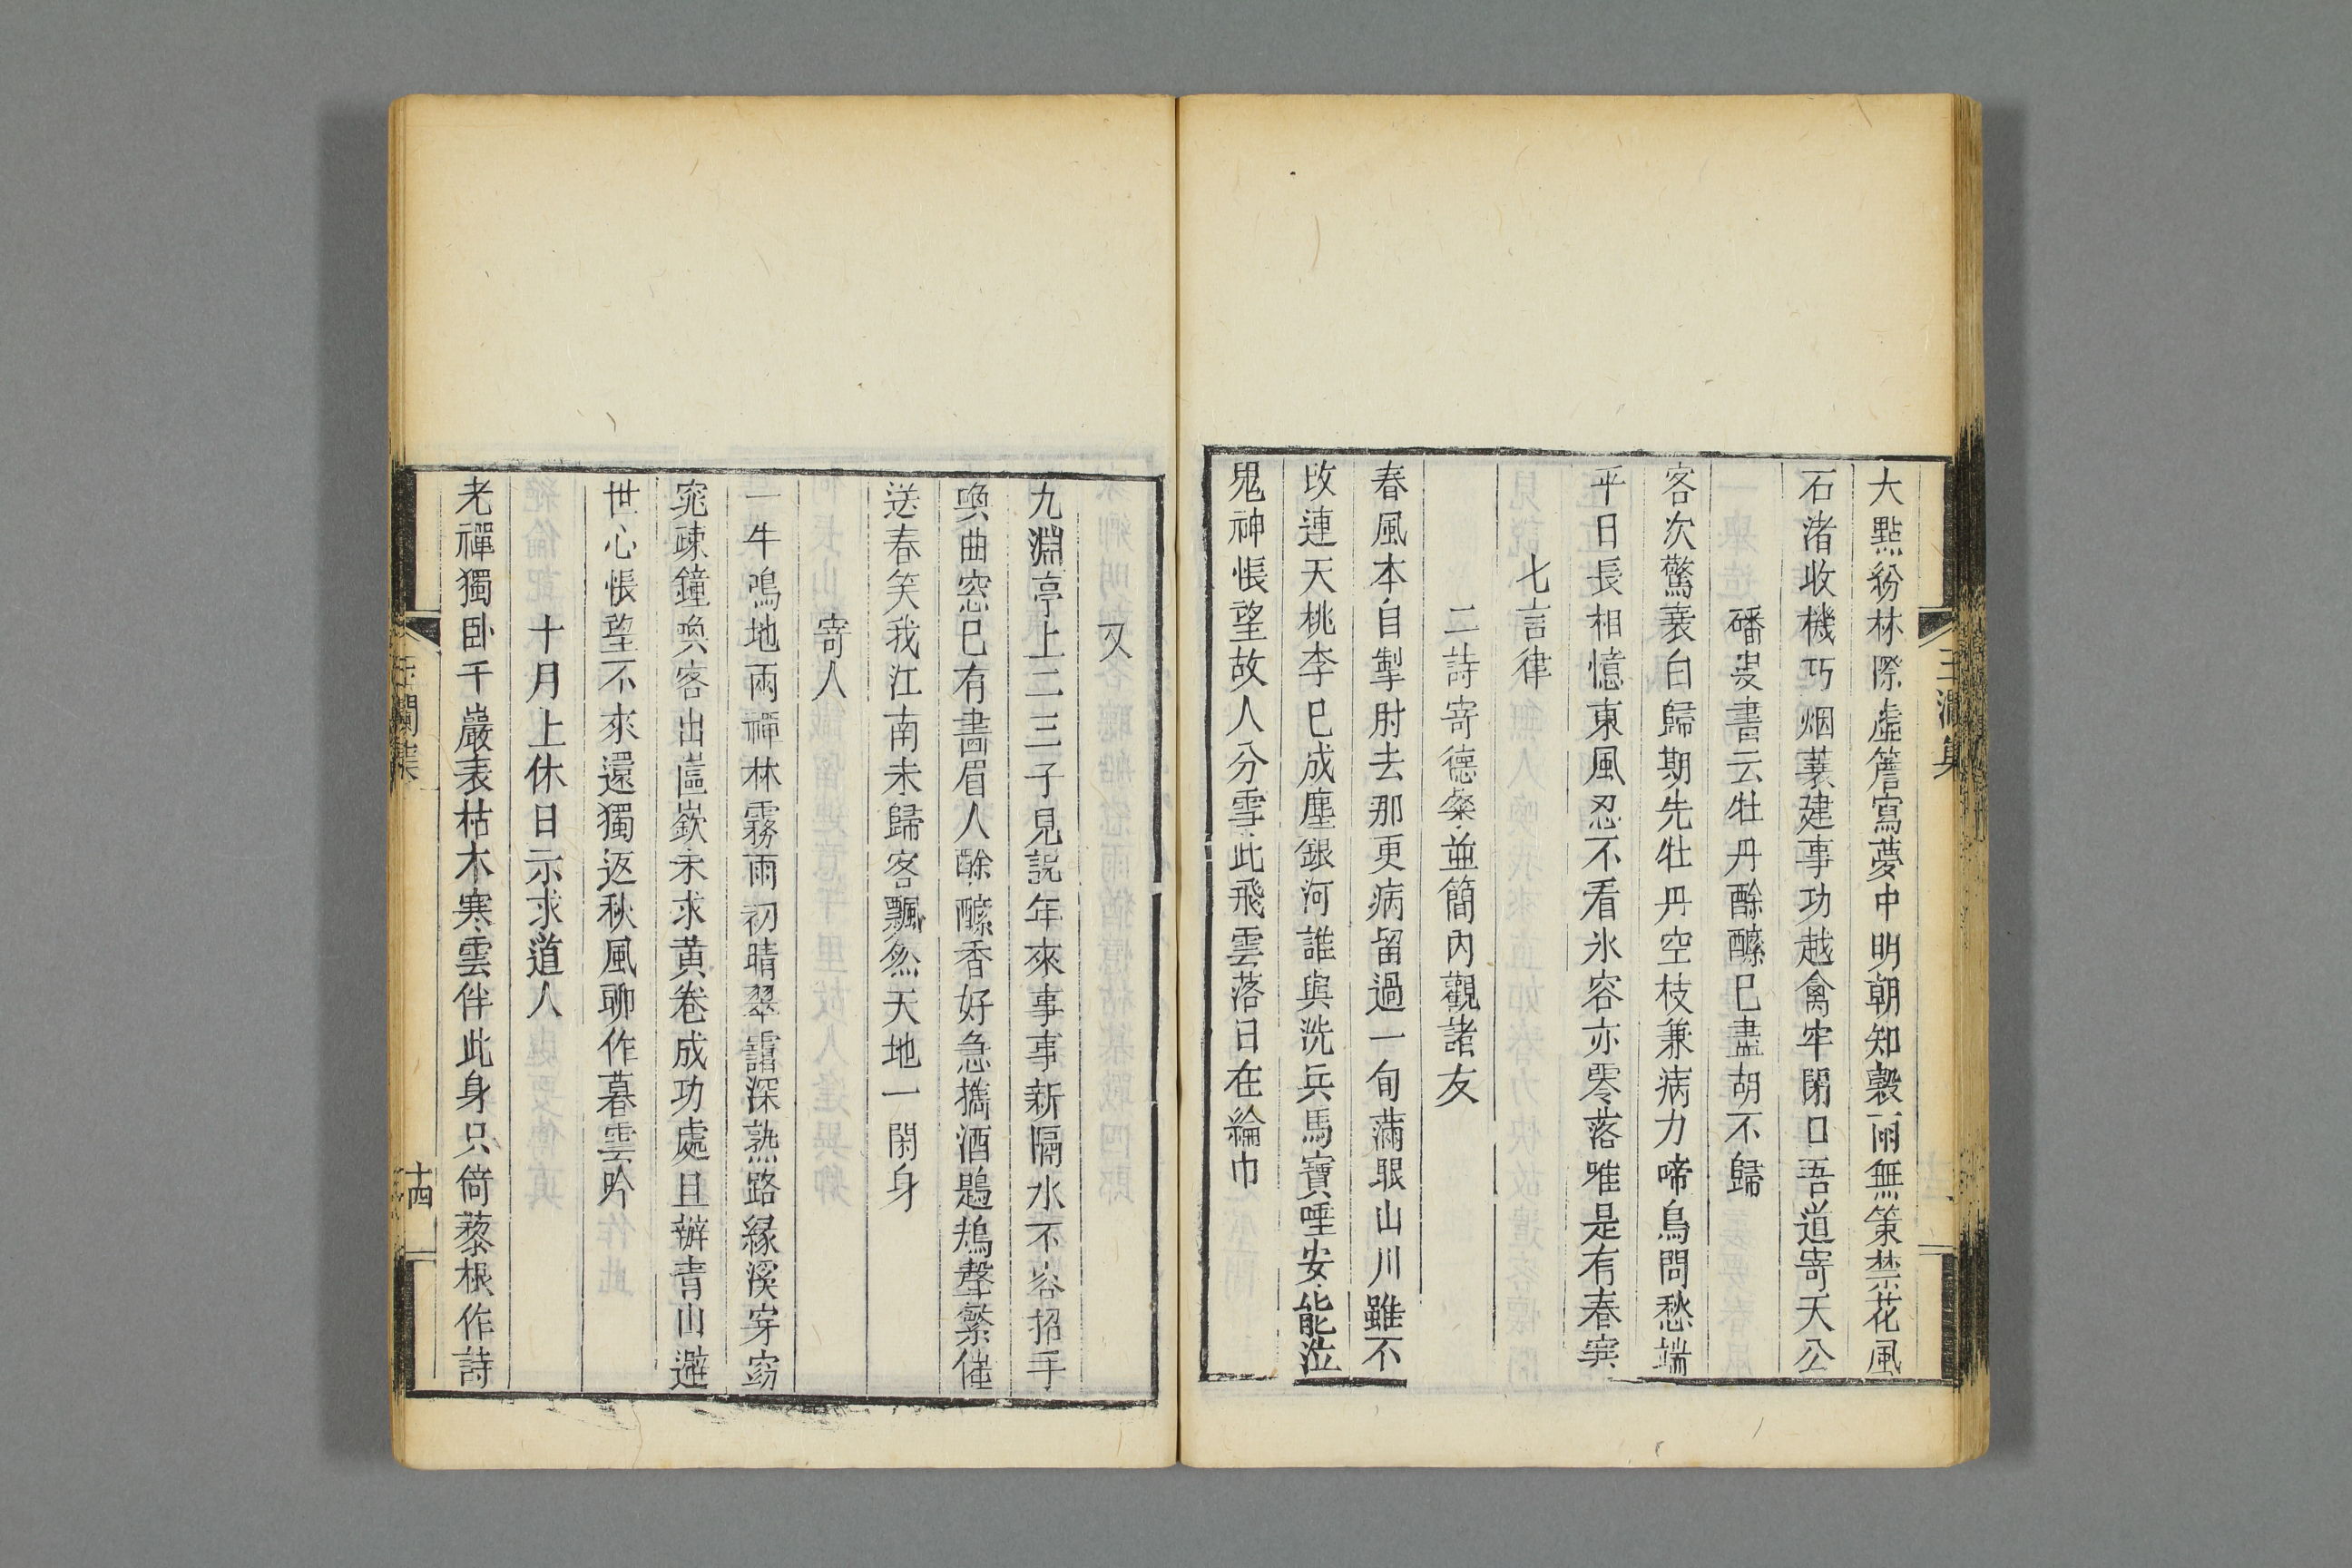 大點紛林際虛簷寫夢中明朝知縠雨無策禁花風
石渚收機巧烟蓑建事功越禽牢閉口吾道寄天公
磻叟書云牡丹酴醿已盡胡不歸
客次驚蓑白歸期先牡丹空枝兼病力啼鳥問愁端
平日長相憶東風忍不看氷容亦零落唯是有春寞
七言律
二詩寄德粲並簡內觀諸友
春風本自掣肘去那更病留過一旬滿眼山川雖不
改連天桃李已成塵銀河誰與洗兵馬寶唾安能泣
鬼神悵望故人分雪此飛雲落日在綸巾
玉瀾集
又
九淵亭上二三子見說年來事事新隔水不容招手
喚曲窓已有畵眉人酴醿香好急攜酒鶗鴂聲繁催
送春笑我江南未歸客飄然天地一閑身
寄人
一牛鳴地兩禪林霧雨初晴翠靄深熟路緣溪穿窈
窕疎鐘喚客出嶇嶔未求黃卷成功處且辦青山避
世心悵望不來還獨返秋風聊作暮雲吟
十月上休日示求道人
老禪獨卧千巖表枯木寒雲伴此身只倚藜根作詩
玉瀾集
十四